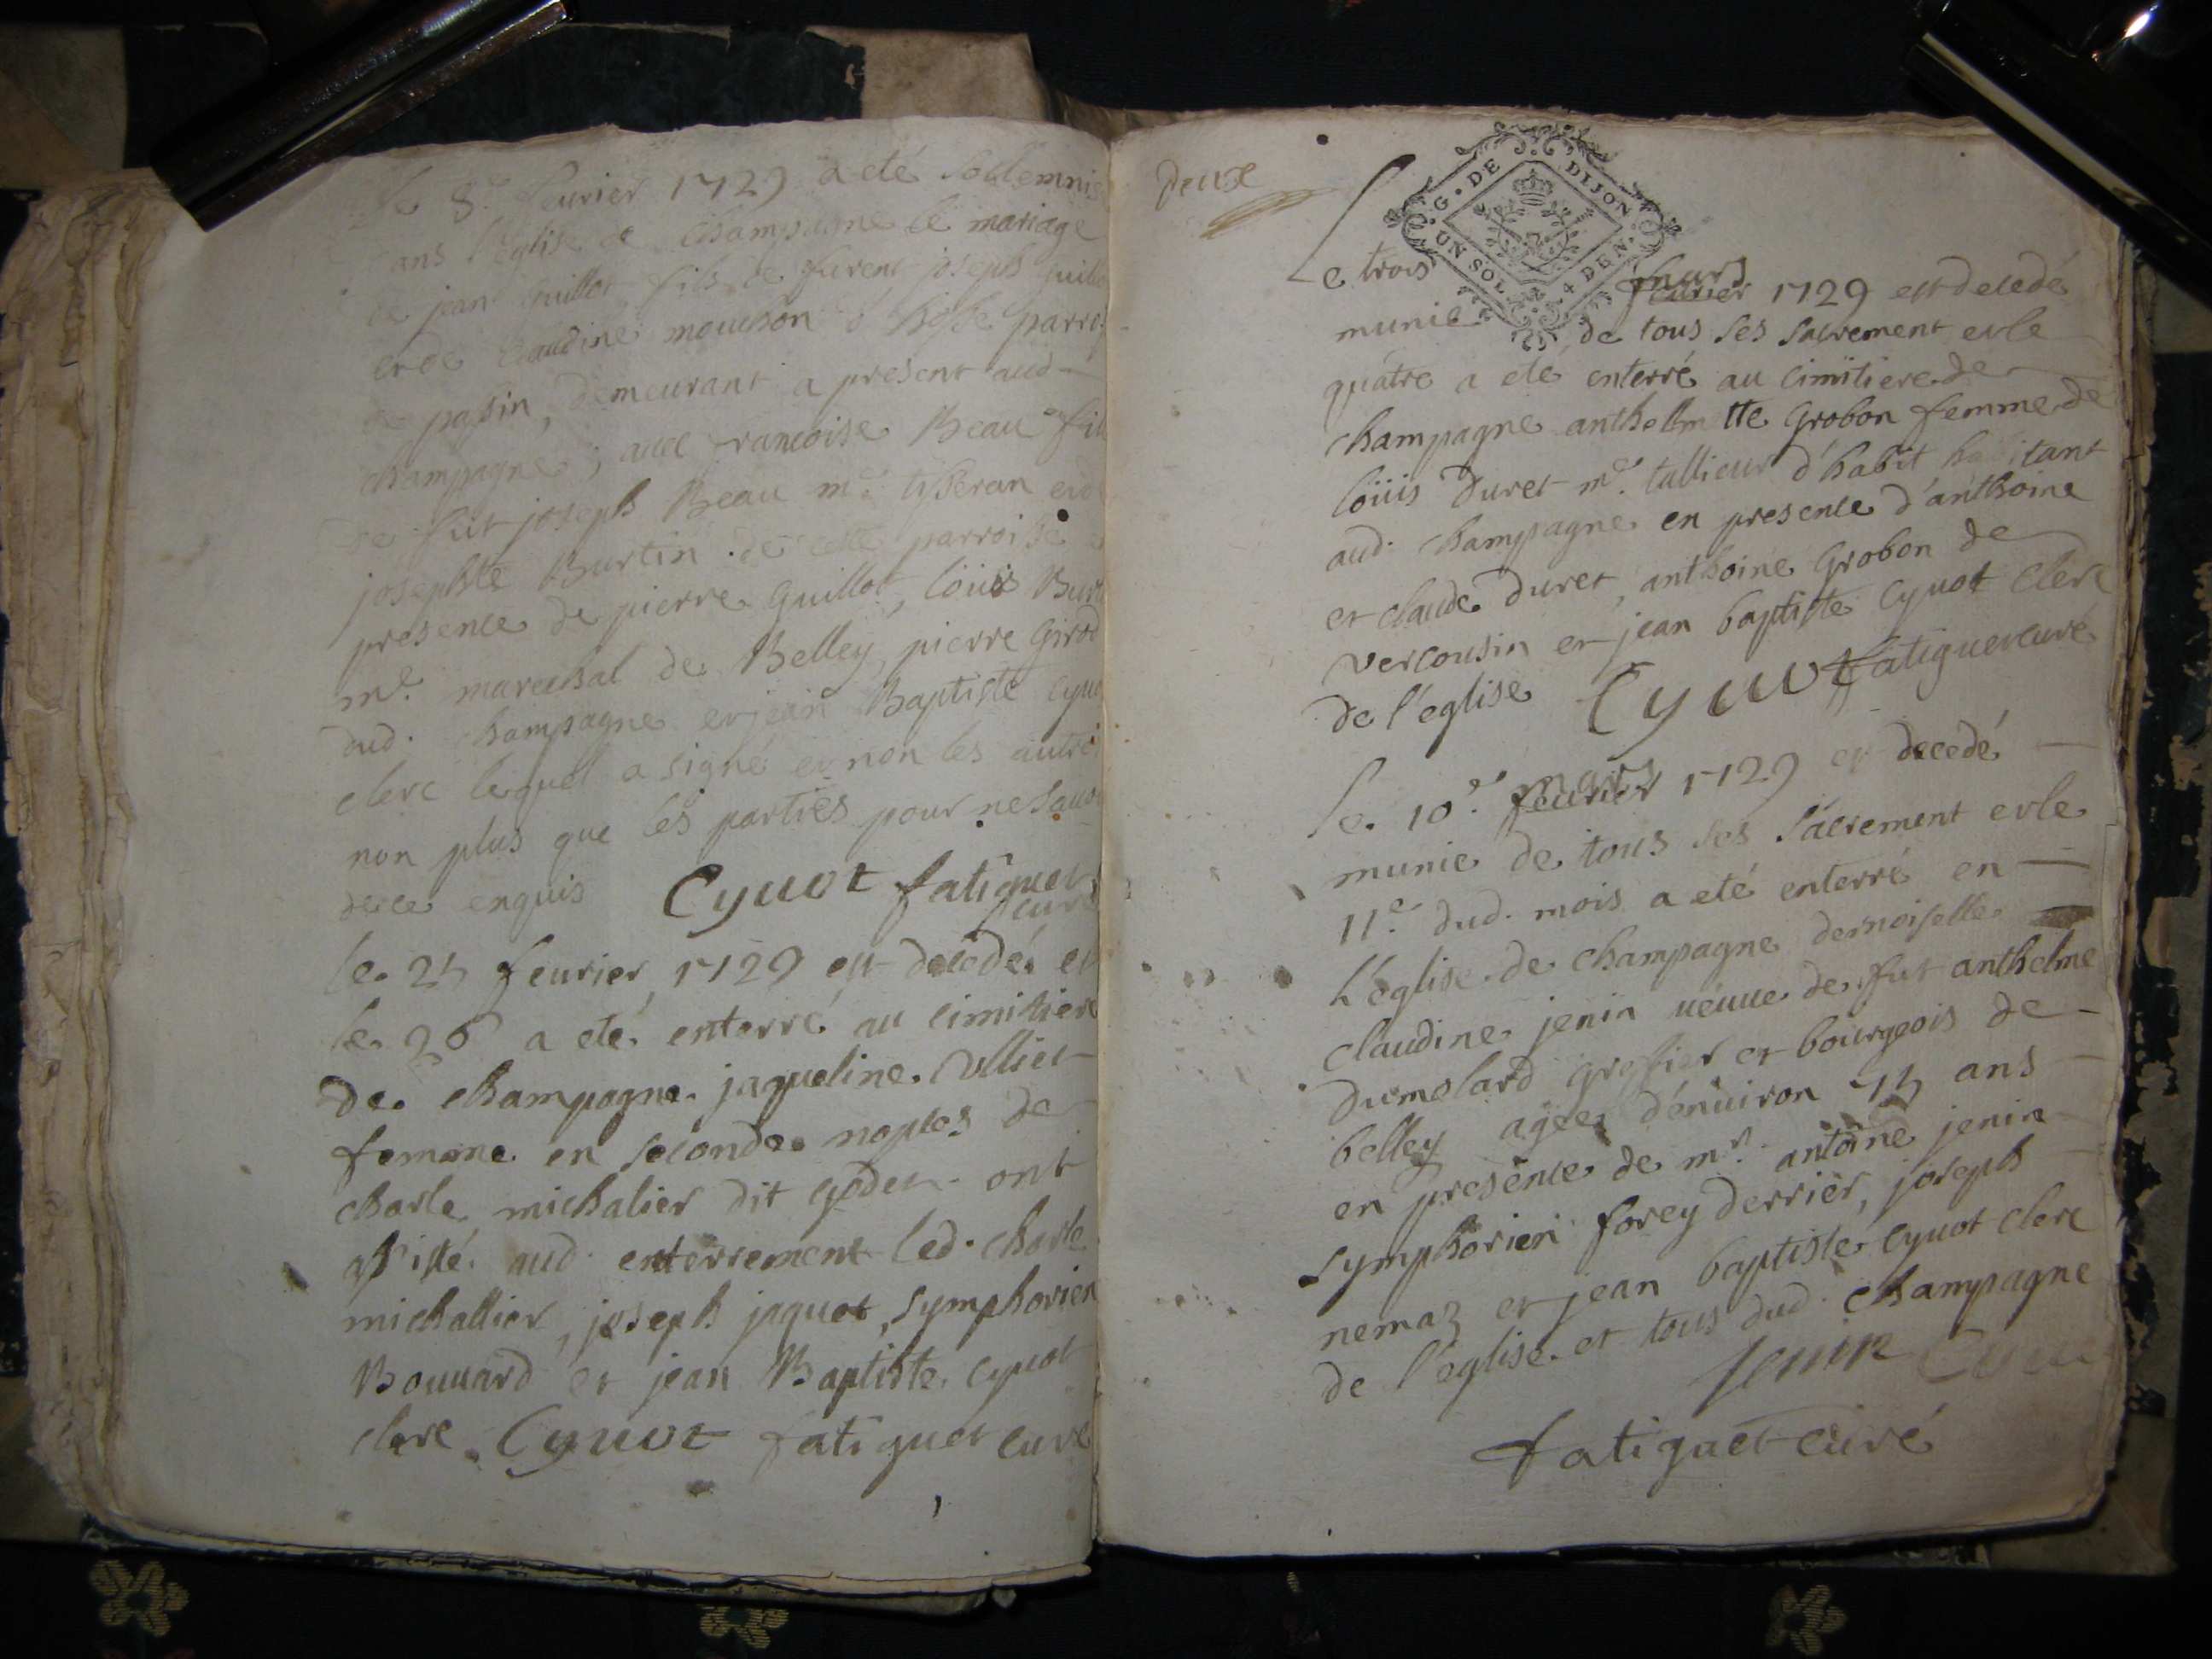 le 8e feurier 1729 a eté sollemnis
dans l'eglise de champagne le mariage
de jean guillot fils de furent joseph guillo
et de claudine mouchon d' parro
de passin, demeurant a present aud
champagne, auec francoise Beau fil
de fut joseph Beau me tisseran et d
josephte Burtin de cette parroisse e
presence de pierre guillot, loüis Burt
me marechal de Belley, pierre girod
dud. champagne et jean Baptiste cyuo
clerc lequel a signé et non les autre
non plus que les parties pour ne sauoi
de ce enquis Cyuot fatiguet
curé
le 25 feurier 1729 est decedé et
le 26 a eté enterré au cimitiere
de champagne jaqueline ulliet
femme en seconde noples de
charle michalier dit godet ont
assisté aud. enterrement led. charle
michallier, joseph jaquet, symphorien
Bouuard et jean Baptiste cyuot
clerc Cyuot fatiguet curé
Deux
G. DE DIJON
UN SOL. 4 DEN.
Le trois feurier mars 1729 est decedé
munie de tous ses sacrement et le
quâtre a eté enterré au cimitiere de
champagne anthelmette Grobon femme de
loüis Duret me tallieur d'habit habitant
aud. champagne en presence d'anthoine
et claude Duret, anthoine Grobon de
vercousin et jean baptiste Cyuot clerc
de l'église Cyuot fatiguet curé
le 10e feurier mars 1729 est decedé
munie de tous ses sacrement et le
11e dud. mois a eté enterré en
l'église de champagne demoiselle
claudine jenin ueuue de fut anthelme
Dumolard greffier et bourgeois de
belley agée d'enuiron 75 ans
en presence de mr. antoine jenin
symphorien forey derrier, joseph
nemaz et jean baptiste cyuot clerc
de l'église et tous dud. champagne
Jenin Cyuot
fatiguet curé